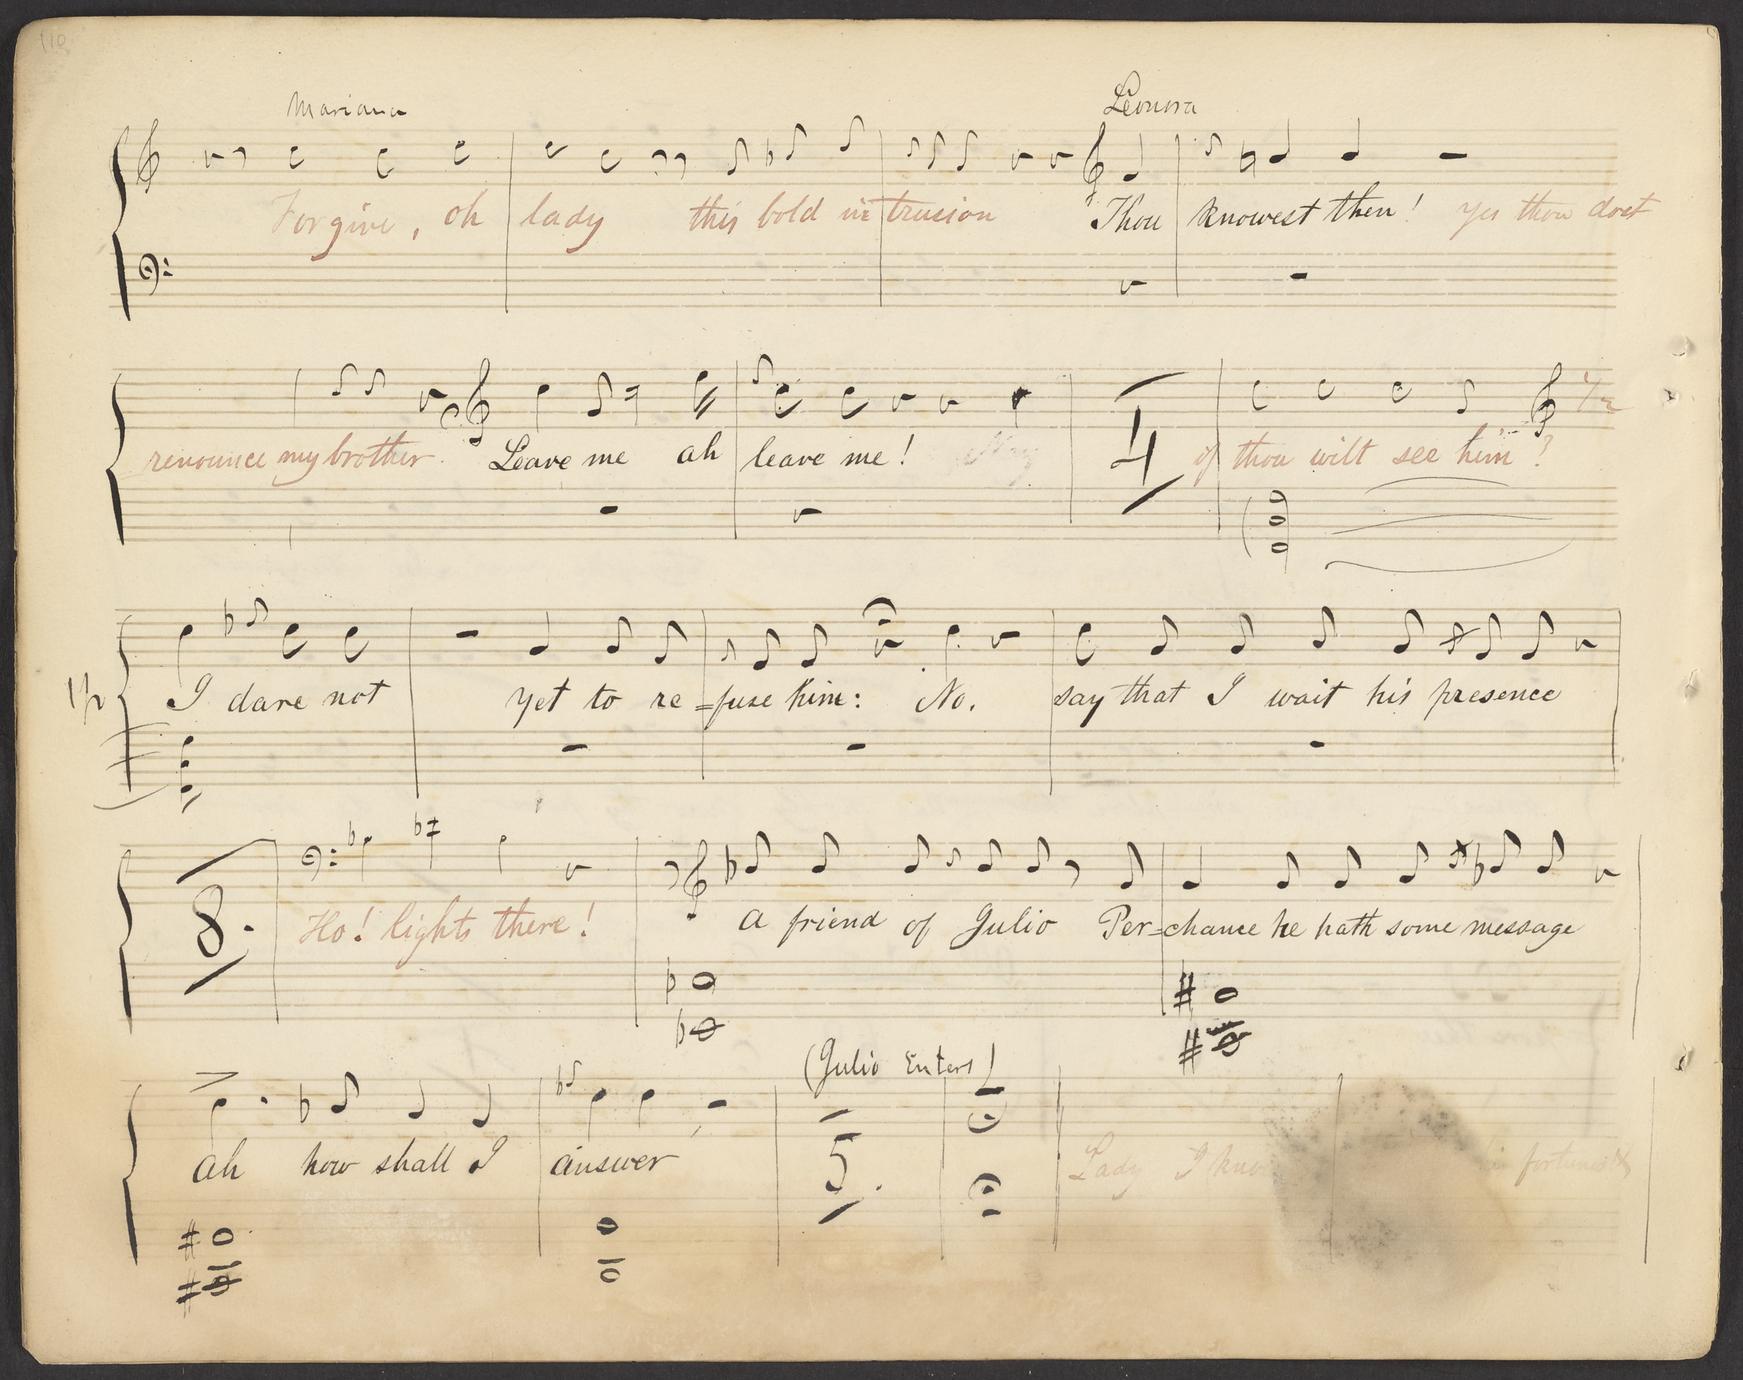 110
Mariana Leonora
Forgive, oh lady this bold intrusion Thou knowest then! yes thou dost
renounce my brother Leave me ah leave me! 4 if thou wilt see him?
I dare not yet to re=fuse him: No. say that I wait his presence
8. Ho! lights there! a friend of Julio Per=chance he hath some message
(Julio Enters)
ah how shall I answer 5. Lady I